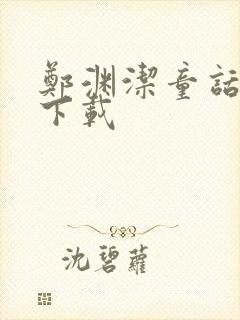 鄭渊潔童話
下載
沈碧蘿